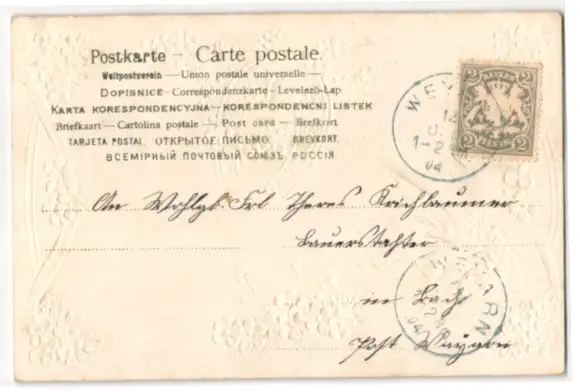 Postkarte – Carte postale.
Weltpostverein — Union postale universelle —
DOPISNICE - Correspondenzkarte - Levelező-Lap
KARTA KORESPONDENCYJNA — KORESPONDENCNÍ LISTEK
Briefkaart — Cartolina postale — Post card — Brefkort
TARJETA POSTAL. ОТКРЫТОЕ ПИСЬМО. BREVKORT.
ВСЕМІРНЫЙ ПОЧТОВЫЙ СОЮЗЪ РОССІЯ.
WEY
12
1-2
04
2 2
2 2
An Wohlgb. Frl. Theres
Bauerstochter
in Bach
Post Weyarn
WEYARN
04